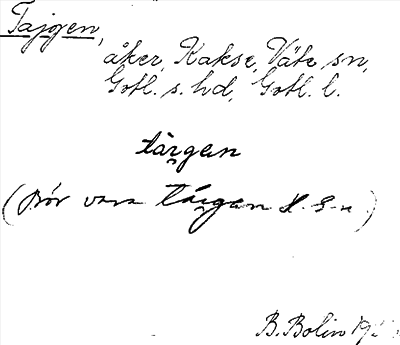 Tajgen,
åker, Kakse, Väte sn,
Gotl. s. hd, Gotl. l.
tàrgan
(Bör vara tárgan H. G-n)
B. Bolin 19